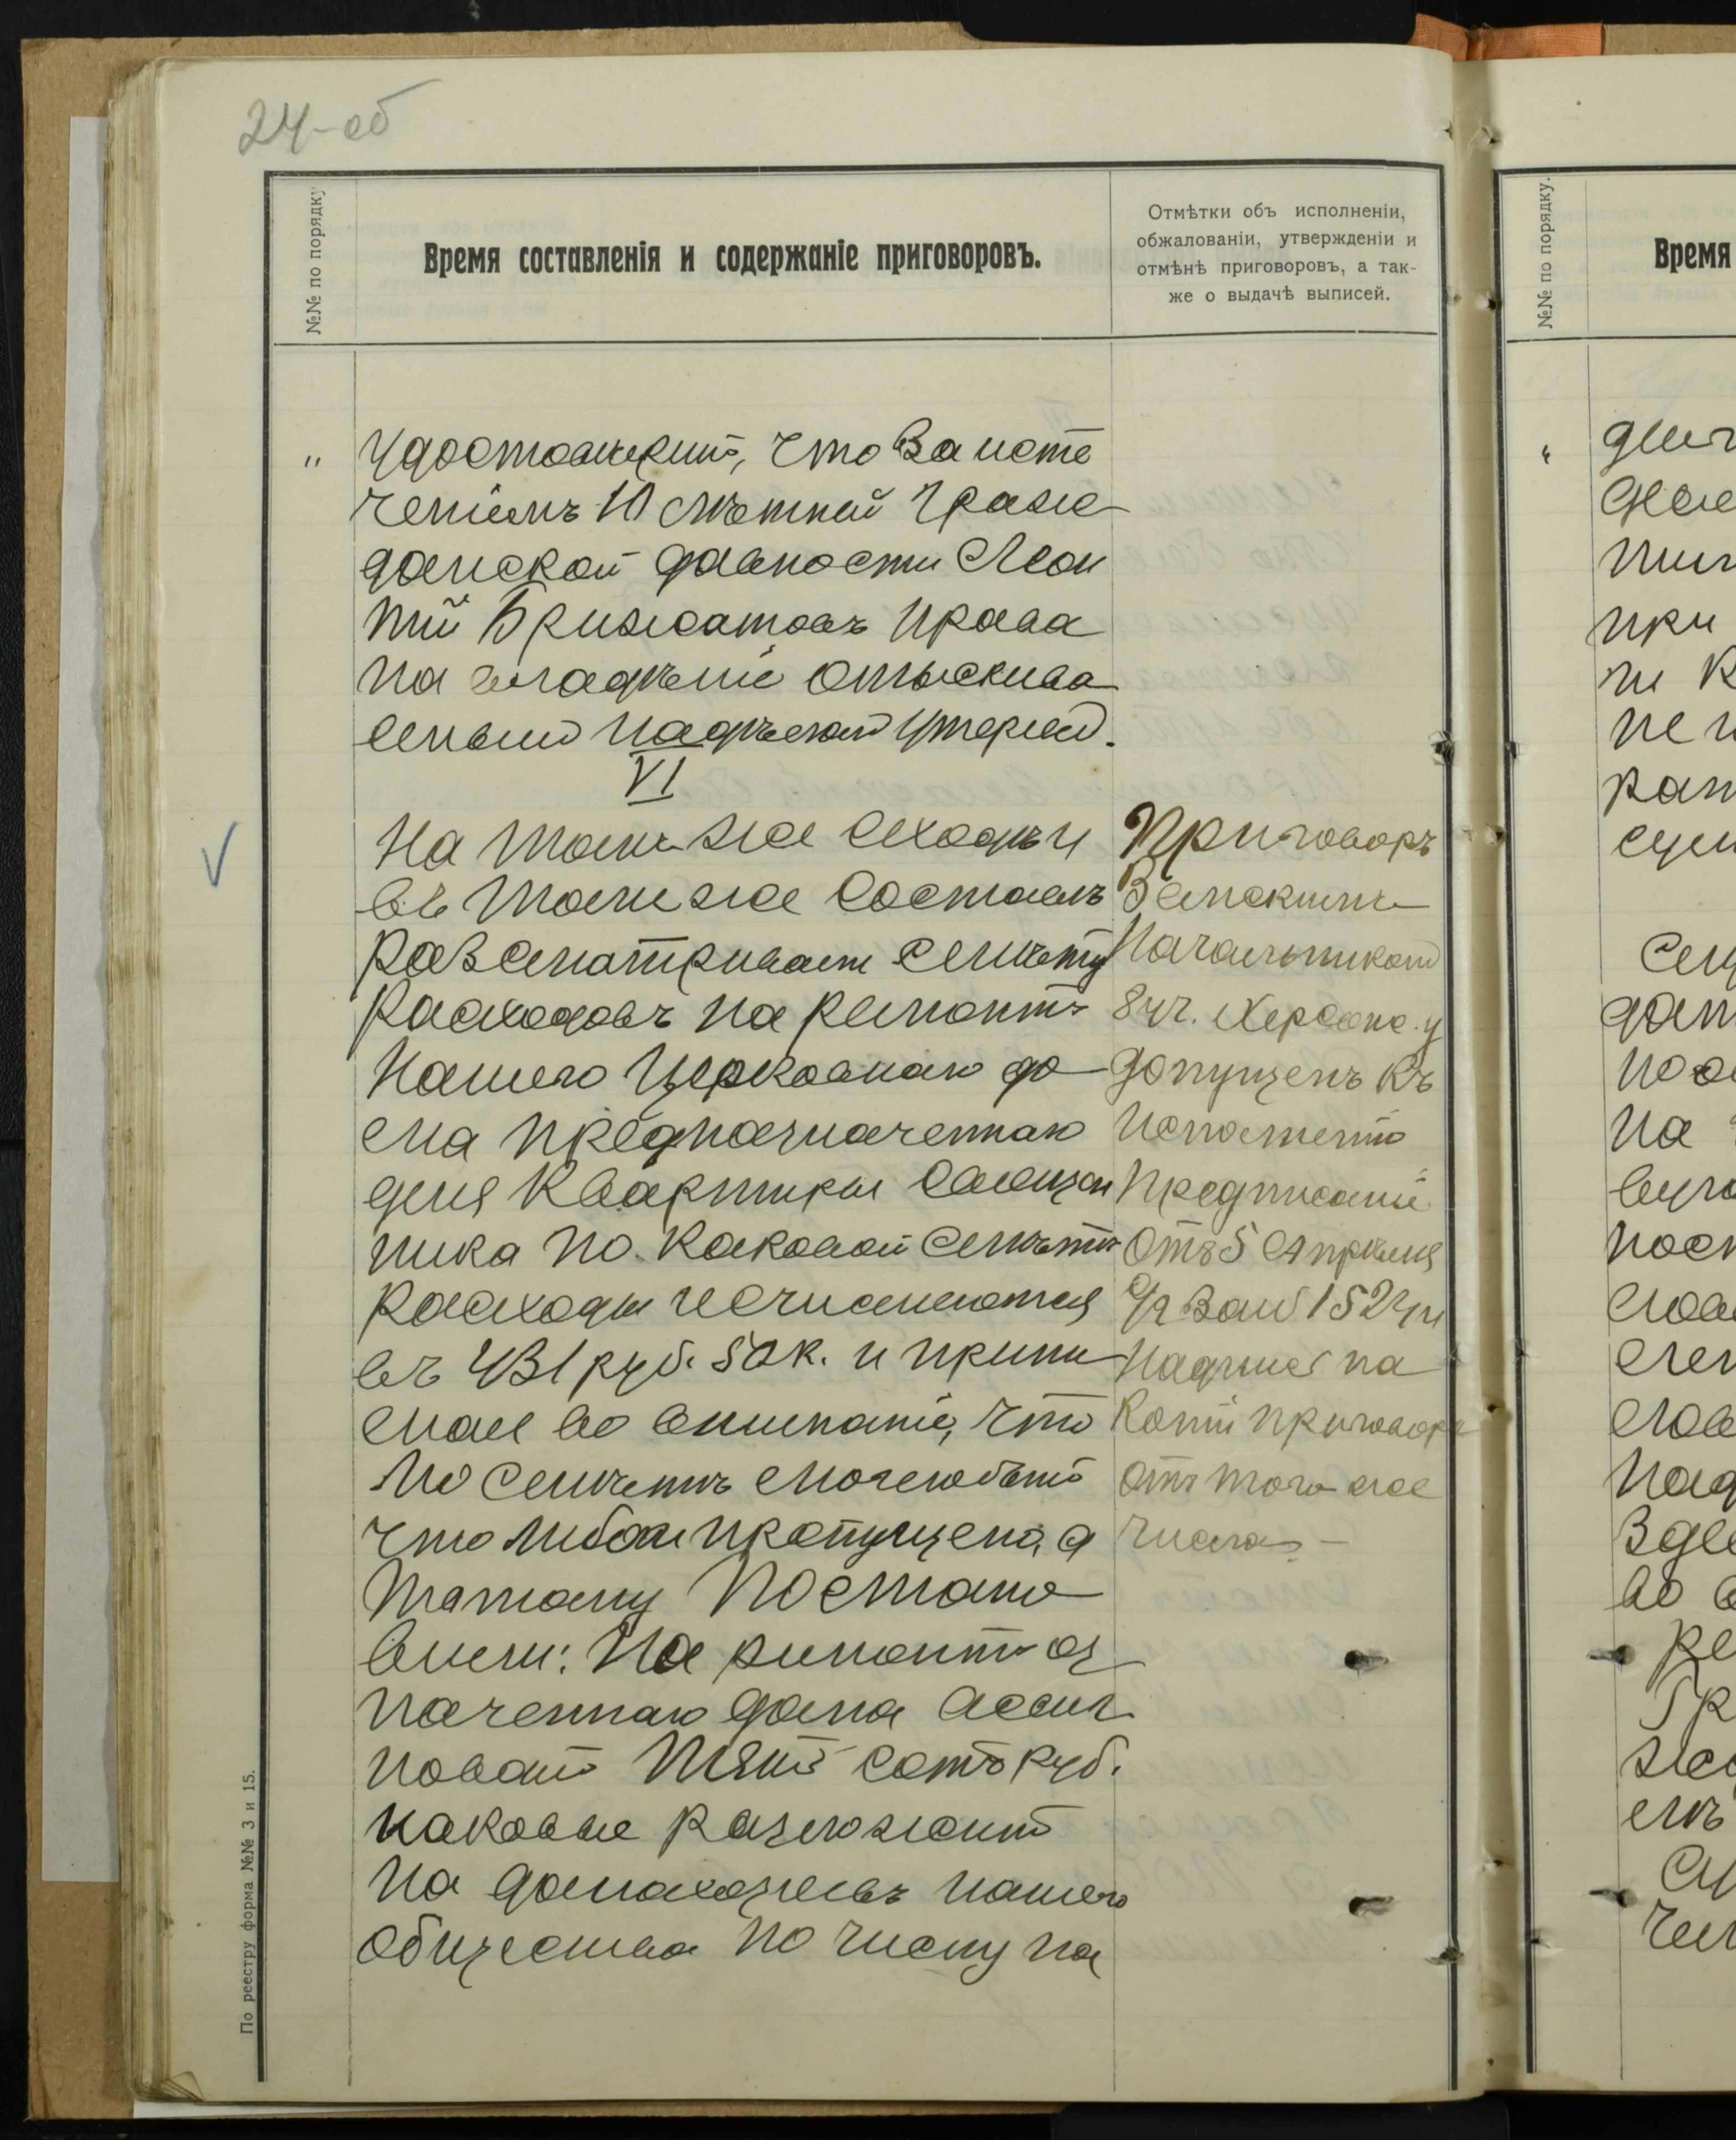 24-об
№№ по порядку
Время составленія и содержаніе приговоровъ.
Отмѣтки объ исполненіи,
обжалованіи, утвержденіи и
отмѣнѣ приговоровъ, а так-
же о выдачѣ выписей.
" Удостовѣрить, что За исте
ченіемъ 10 лѣтней Граж
данской давности Леон
тій Брижатовъ права
на владѣніе отыскива
емымъ надѣломъ утерял.
VI
На томъ же Сходѣ и
въ томъ же Составѣ
разсматривали смѣту
расходовъ на ремонтъ
Нашего Церковнаго до
ма предназначеннаго
для Квартиры Священ
ника по каковой смѣтѣ
расходы исчисляются
въ 431 руб. 50 к. и прини
мая во вниманіе, что
по смѣтѣ можетъ быть
что либо и пропущено, а
потому Постано
вили: На ремонтъ оз
наченнаго дома ассиг
новать Пять сотъ руб.
каковые разложить
на домохозяевъ нашего
общества по числу на
Приговоръ
Земскимъ
Начальникомъ
8 уч. Херсонс. у
допущенъ къ
исполненію
Предписаніе
отъ 5 Апрѣля
с/г за № 1524 и
Надпись на
Копіи приговора
отъ того же
числа –
По реестру форма №№ 3 и 15.
№№ по порядку.
Время